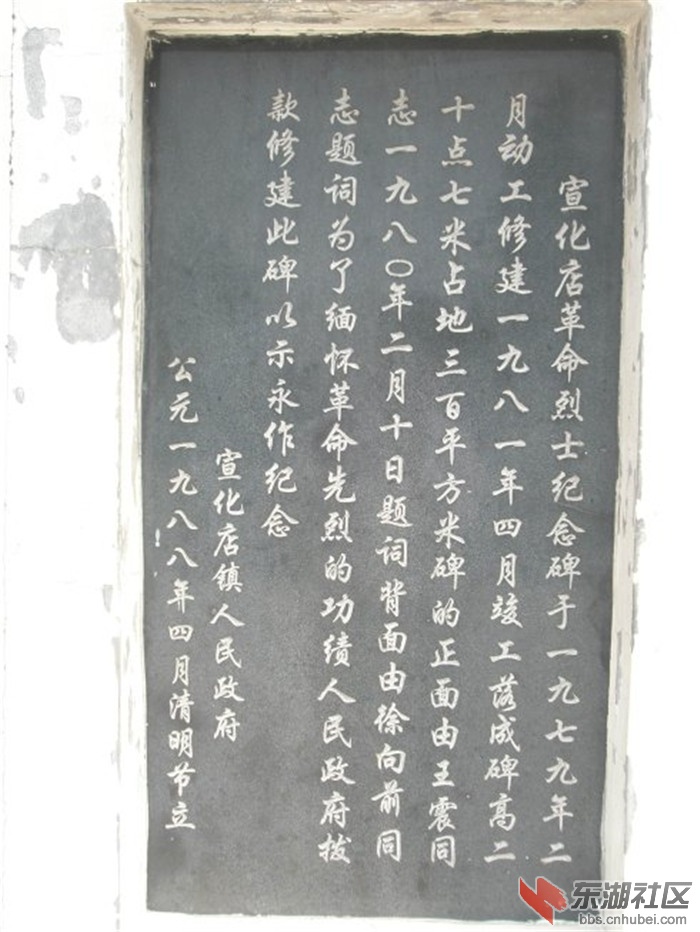 宣化店革命烈士纪念碑于一九七九年二
月动工修建一九八一年四月竣工落成碑高二
十点七米占地三百平方米碑的正面由王震同
志一九八〇年二月十日题词背面由徐向前同
志题词为了缅怀革命先烈的功绩人民政府拨
款修建此碑以示永作纪念
宣化店镇人民政府
公元一九八八年四月清明节立
东湖社区
bbs.cnhubei.com